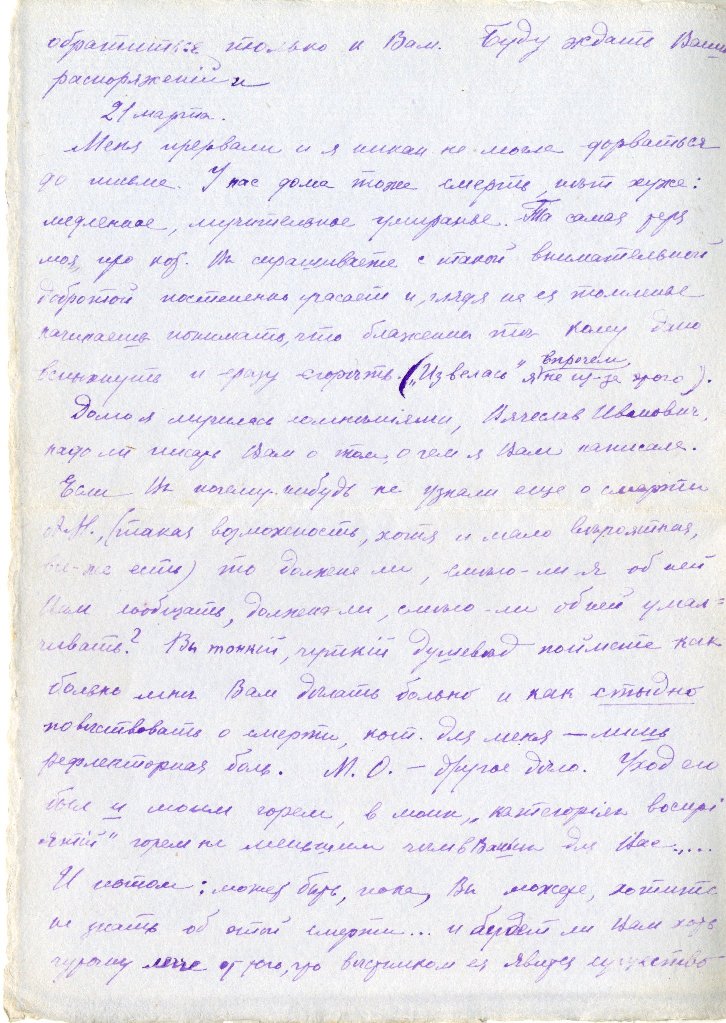 обратиться только к Вам. Буду ждать Ваши
распоряженій
21 марта.
Меня прервали и я никак не могла дорваться
до письма. У нас дома тоже смерть, нѣт хуже:
медленное, мучительное умиранье. Та самая
моя, про кот. Вы спрашиваете с такой внимательной
добротой постепенно угасает и, глядя на ея томленье
начинаешь понимать, что блаженны тѣ кому дано
вспыхнуть и сразу сгорѣть. („Извелась" я впрочем не из-за этого).
Долго я мучилась сомнѣніями, Вячеслав Иванович,
надо ли писать Вам о том, о чем я Вам написала.
Если Вы почему-нибудь не узнали еще о смерти
А.Н., (такая возможность, хотя и мало вѣроятная,
все-же есть) то должна ли, смѣю-ли я об ней
Вам сообщать, должна ли, смѣю-ли об ней умал-
чивать? Вы тонкій, чуткій душевѣд поймете как
больно мнѣ Вам дѣлать больно и как стыдно
повѣствовать о смерти, кот. для меня — лишь
рефлекторная боль. М. О. — другое дѣло. Уход его
был и моим горем, в моих „категоріях воспрі
ятій" горем не меньшим чѣм Ваши для Вас....
И потом: может быть, пока, Вы, может, хотите
не знать об этой смерти... и будет ли Вам хоть
чуточку легче от того, что вѣстником ея явится